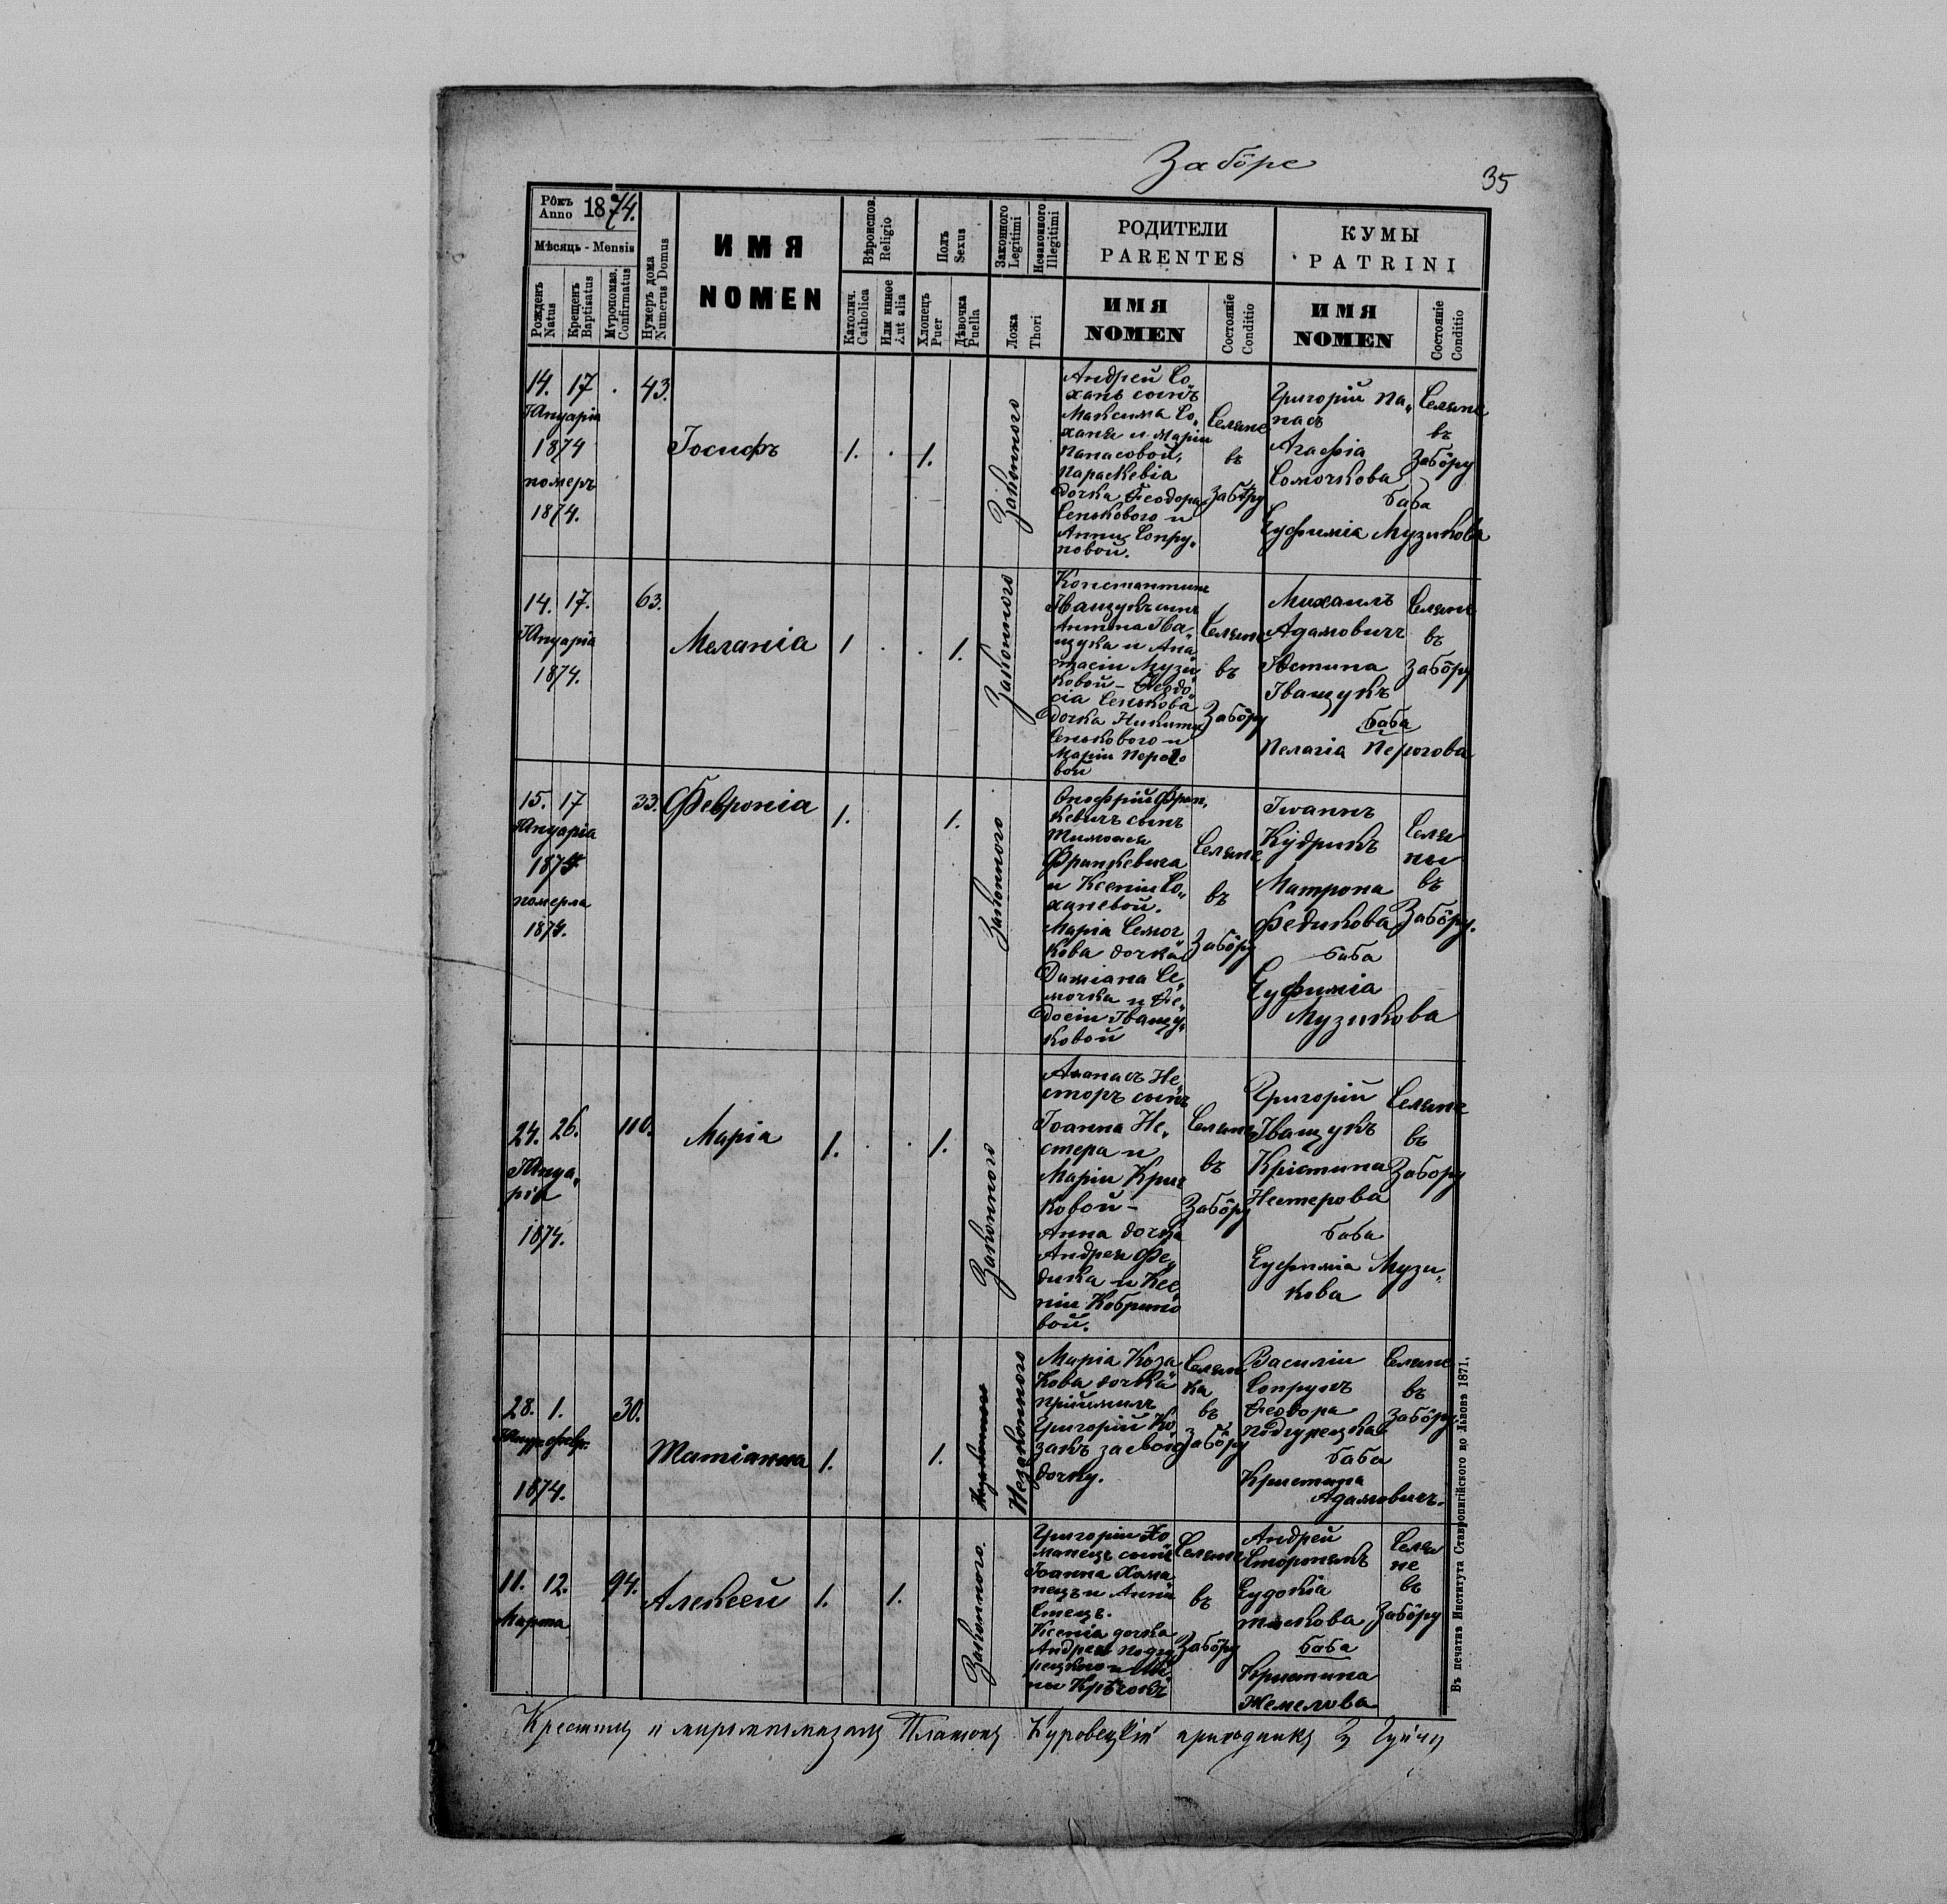 Забôре
35
Рôкъ
Anno
1874.
Мѣсяць - Mensis
Рожденъ
Natus
Крещенъ
Baptisatus
Мѵропомаз.
Confirmatus
Нумеръ дома
Numerus Domus
ИМЯ
NOMEN
Вѣроиспов.
Religio
Католич.
Catholica
Или инное
Aut alia
Полъ
Sexus
Хлопецъ
Puer
Дѣвочка
Puella
Законного
Legitimi
Незаконного
Illegitimi
Ложа
Thori
РОДИТЕЛИ
PARENTES
ИМЯ
NOMEN
Состояніе
Conditio
КУМЫ
PATRINI
ИМЯ
NOMEN
Состояніе
Conditio
14. 17 . 43.
Януарія
1874
померъ
1874.
Іосифъ
1. . 1.
Законного
Андрей Со„
хань сынъ
Максима Со„
ханя и Маріи
Панасовой,
Параскевія
дочка Феодора
Сенькового и
Анны Сопру„
новой.
Селяне
въ
Забôру
Григорій Па„
насъ
Агафія
Сомочкова
баба
Еуфимія Музикова
Селяне
въ
Забôру
14. 17. 63.
Януарія
1874.
Меланія
1 . . 1.
Законного
Константинъ
Іващукъ сынъ
Антона Іва„
щука и Ана„
стасіи Музи„
ковой – Феодо„
сія Сенькова
дочка Никиты
Сенькового и
Маріи Перого
вой
Селяне
въ
Забôру
Михаилъ
Адамовичъ
Юстина
Іващукъ
баба
Пелагія Перогова
Селяне
въ
Забôру
15. 17 33.
Януарія
1874
померла
1874.
Февронія
1. 1.
Законного
Онофрій Фран„
кевичъ сынъ
Тимофея
Франкевича
и Ксеніи Со„
ханевой.
Марія Семоч„
кова дочка
Даміана Се„
мочка и Фе„
досіи Іващу„
ковой
Селяне
въ
Забôру
Іоаннъ
Кудрикъ
Матрона
Федикова
баба
Еуфимія
Музикова
Селя
ны
въ
Забôру.
24. 26. 110.
Януа„
рія
1874.
Марія
1. . . 1.
Законного
Аѳанасъ Не„
сторъ сынъ
Іоанна Не„
стера и
Маріи Криг
ковой –
Анна дочка
Андрея Фе„
дика и Ксе„
ніи Кобрино
вой.
Селяне
въ
Забôру
Григорій
Іващукъ
Крістина
Нестерова
баба
Еуфимія Музи„
кова
Селяне
въ
Забору
28. 1. 30.
Януар. февр.
1874.
Татіанна
1. 1.
Незаконного
Марія Коза„
кова дочка
пріймилъ
Григорій Ко„
закъ за свою
дочку.
Селян
ка
въ
Забôру
Василій
Сопрунъ
Феодора
Подгурецка
баба
Кристина
Адамовичъ.
Селяне
въ
Забôру
11. 12. 94.
Марта
Алексей
1. 1.
Законного.
Григорій Хо„
манецъ сынъ
Іоанна Хома
нецъ и Анна
Стецъ.
Ксенія дочка
Андрея Подгу
рецкого и
Селяне
въ
Забôру
Андрей
Сторонякъ
Еудокія
баба
Кристина
Жемелова
Селя
не
въ
Забôру
Крестилъ и миропомазалъ Платонъ Куровецкій приходникъ
Въ печатнѣ Института Ставропигійского во Львовѣ 1871.